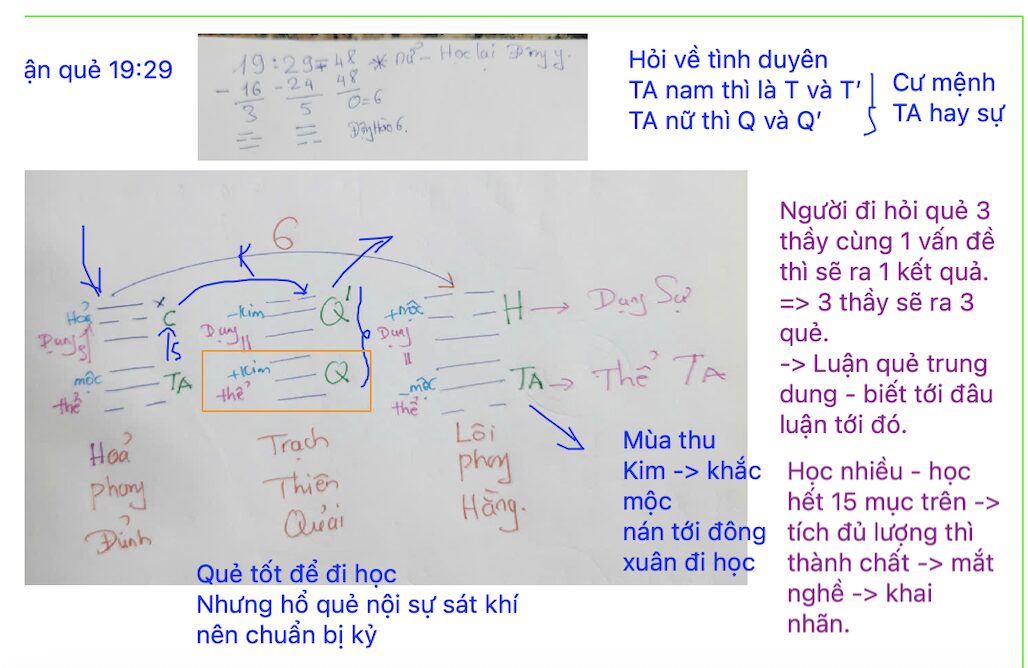 ận quẻ 19:29
19 : 29 = 48 * nữ - Học lại Đông y.
- 16 - 24 48
3 5 0 = 6
Động Hào 6.
Hỏi về tình duyên
TA nam thì là T và T’
TA nữ thì Q và Q’
Cư mệnh
TA hay sự
6
K
Hoả
C
Dụng
TS
mộc
TA
thể
Hoả
phong
Đỉnh
-Kim
Q'
Dụng
+Kim
Q
thể
Trạch
Thiên
Quải
+mộc
H → Dụng Sự
Dụng
-mộc
TA → Thể TA
thể
Lôi
phong
Hằng.
Người đi hỏi quẻ 3
thầy cùng 1 vấn đề
thì sẽ ra 1 kết quả.
=> 3 thầy sẽ ra 3
quẻ.
-> Luận quẻ trung
dung - biết tới đâu
luận tới đó.
Mùa thu
Kim -> khắc
mộc
nán tới đông
xuân đi học
Học nhiều - học
hết 15 mục trên ->
tích đủ lượng thì
thành chất -> mắt
nghề -> khai
nhãn.
Quẻ tốt để đi học
Nhưng hổ quẻ nội sự sát khí
nên chuẩn bị kỷ